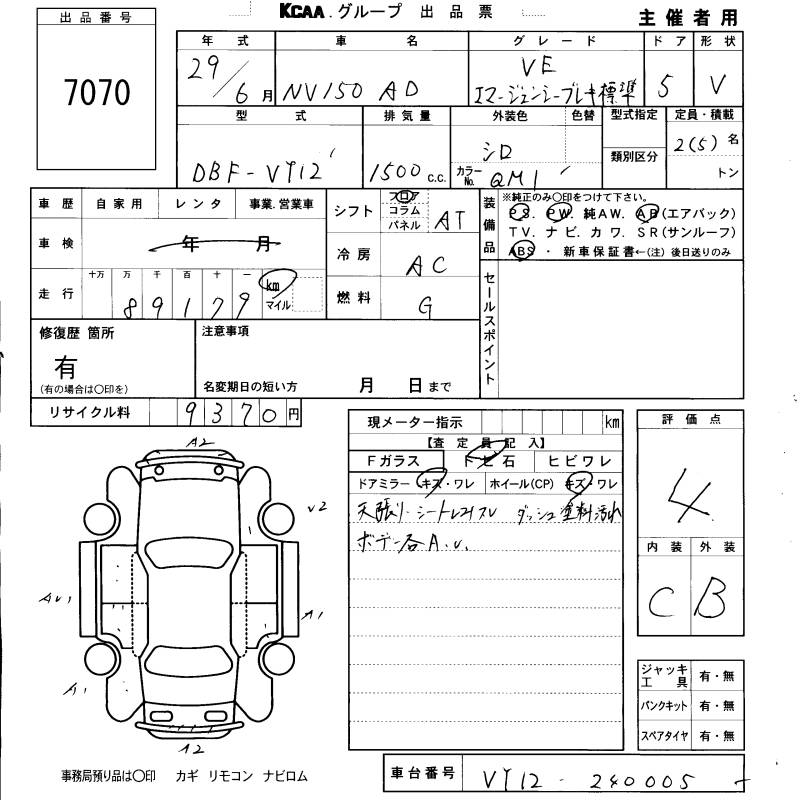 KCAA.グループ 出品票
主催者用
出品番号
7070
年式 車名 グレード ドア 形状
29/6月 NV150 AD VE 5 V
エマージェンシーブレーキ標準
型式 排気量 外装色 色替 型式指定 定員・積載
DBF-VY12 1500c.c. シロ 2(5)名
カラーNo. QM1 類別区分 トン
車歴 自家用 レンタ 事業.営業車
車検 年 月
走行 十万 万 千 百 十 一
89179 km マイル
シフト フロア コラム パネル AT
冷房 AC
燃料 G
装備品 ※純正のみ○印をつけて下さい。
PS. PW. 純AW. AB(エアバック)
TV. ナビ. カワ. SR(サンルーフ)
ABS ・ 新車保証書←(注) 後日送りのみ
セールスポイント
修復歴 箇所 注意事項
有
(有の場合は○印を) 名変期日の短い方 月 日まで
リサイクル料 9370円
現メーター指示 km
【査定員記入】
Fガラス トビ石 ヒビワレ
ドアミラー キズ・ワレ ホイール(CP) キズ・ワレ
天張り シート ダッシュ 塗料汚れ
ボデー各A.U.
評価点
4
内装 外装
C B
A2
v2
AU1
A1
A1
A2
ジャッキ工具 有・無
パンクキット 有・無
スペアタイヤ 有・無
事務局預り品は○印 カギ リモコン ナビロム
車台番号 VY12-240005